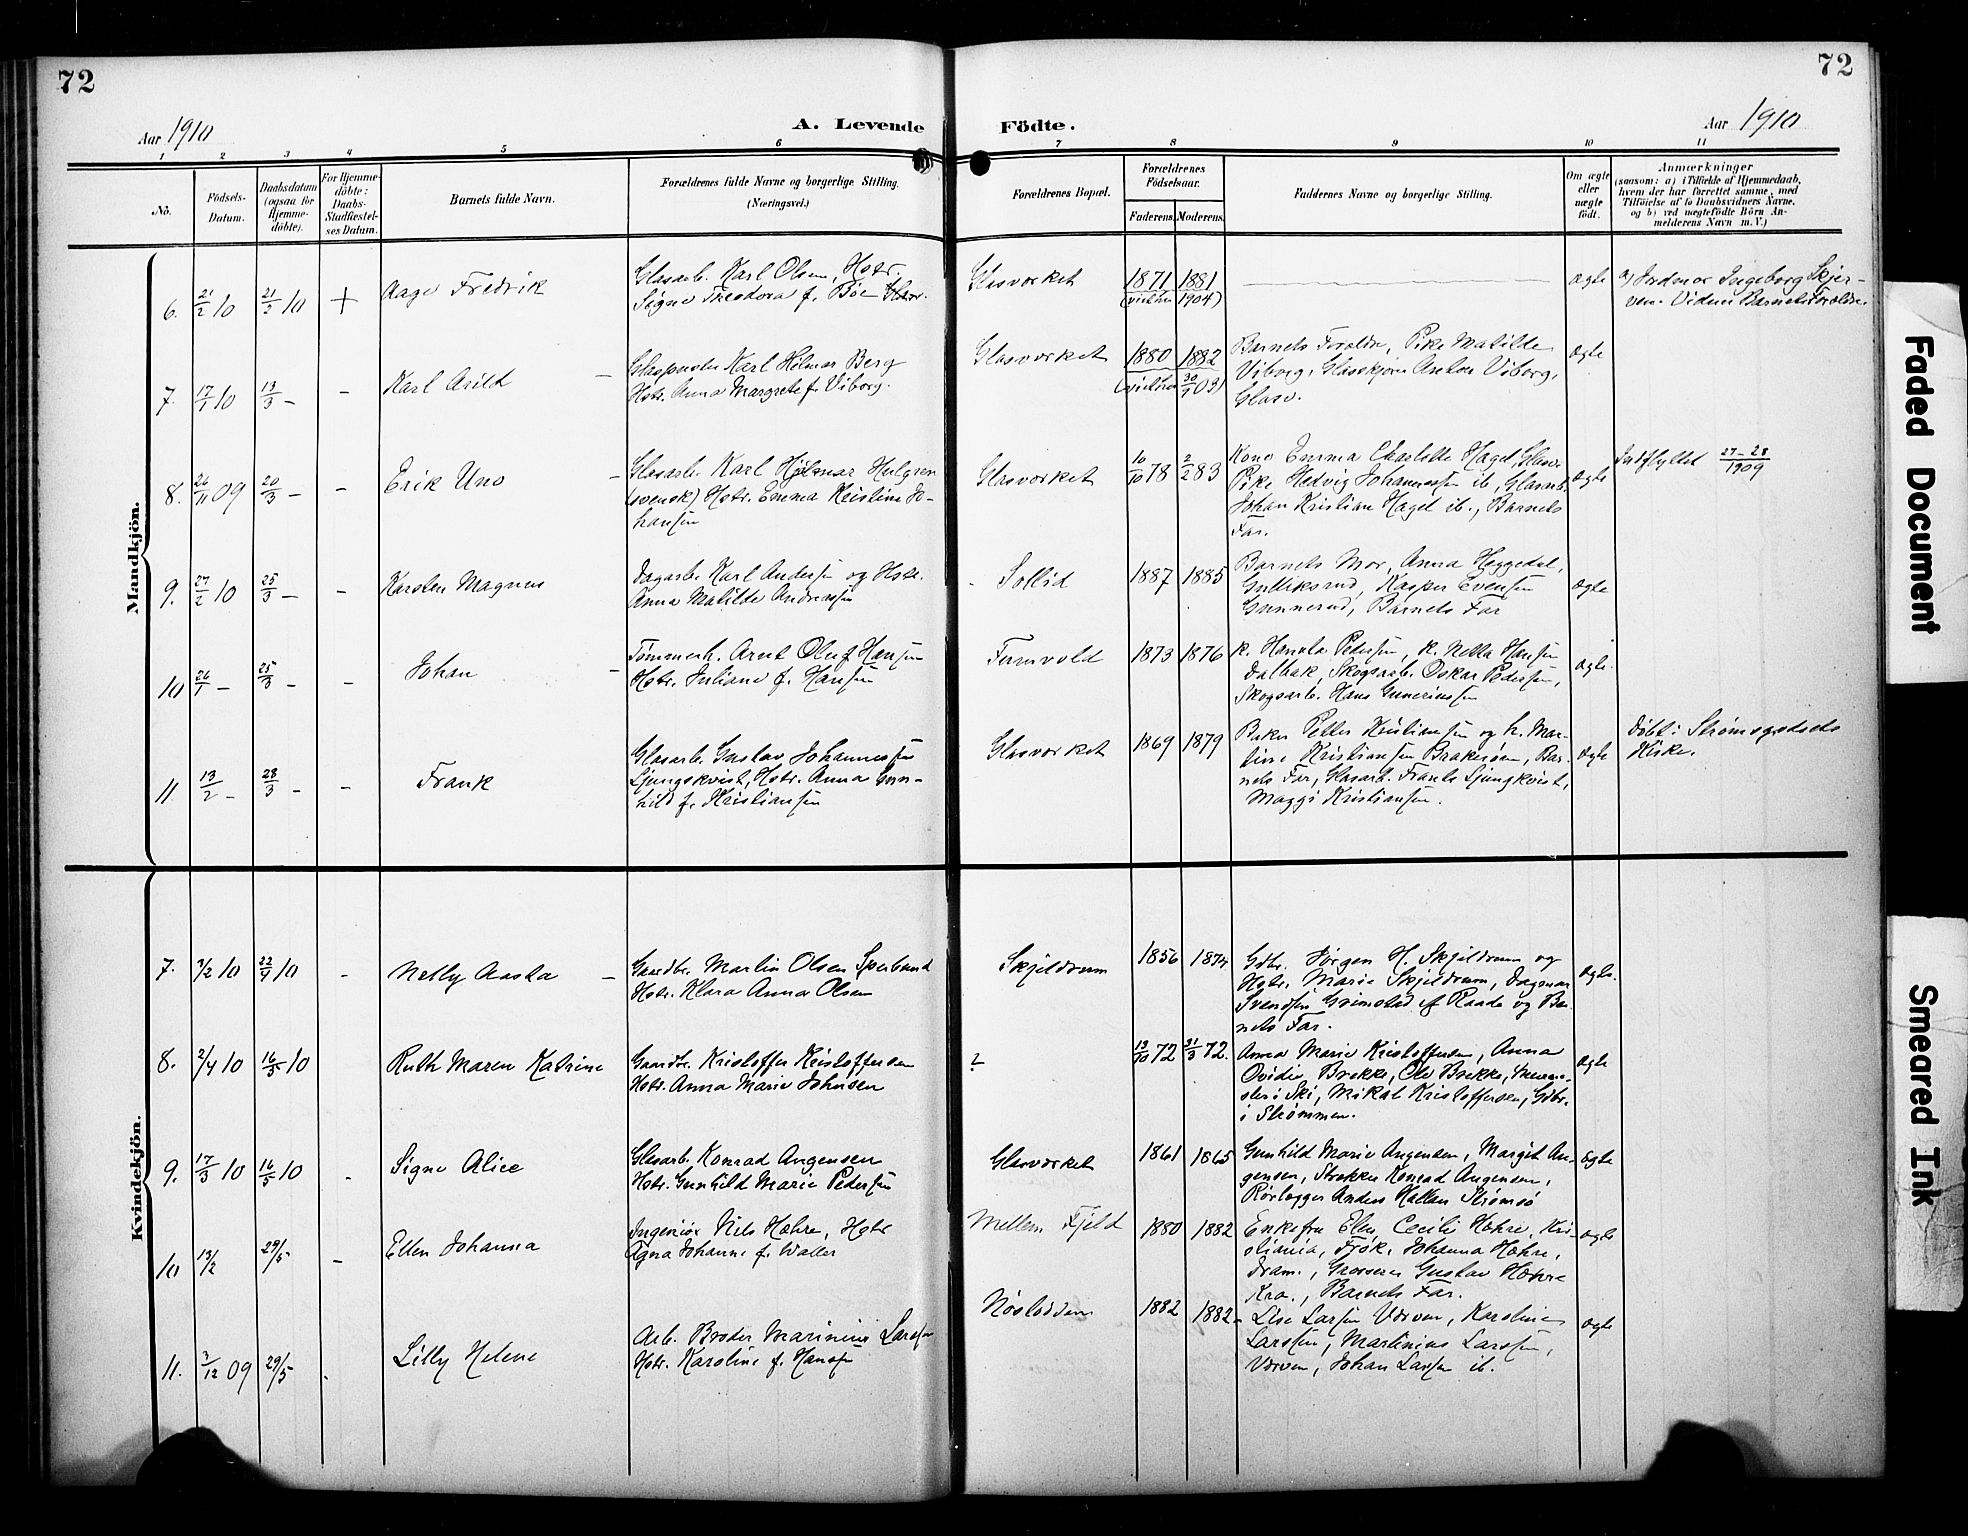 72
72
Aar 1910
A. Levende
Födte.
Aar 1910
1 2 3 4 5 6 7 8 9 10 11
No.
Födsels-
Datum.
Daabsdatum
(ogsaa for
Hjemme-
döbte).
For Hjemme-
döbte:
Daabs-
Stadfæstel-
ses Datum.
Barnets fulde Navn.
Forældrenes fulde Navne og borgerlige Stilling.
(Næringsvei.)
Forældrenes Bopæl.
Forældrenes
Födselsaar.
Faderens.
Moderens.
Faddernes Navne og borgerlige Stilling.
Om ægte
eller
uægte
födt.
Anmærkninger
(saasom: a) i Tilfælde af Hjemmedaab,
hvem der har forrettet samme, med
Tilföielse af to Daabsvidners Navne,
og b) ved uægtefödte Börn An-
melderens Navn m. V.)
Mandkjön.
6. 21/2 10 21/2 10 + Aage Fredrik
Glasarb. Karl Olsen, Hstr.
Signe Theodora f. Böe
Glasværket
1871 1881
(viet 1904)
ægte
a) Jordmor Ingeborg Skjer-
ven. Vidner Barnets Foreldre.
7. 17/1 10 13/3 - - Karl Arild
Glaspuster Karl Hilmar Berg
Hstr. Anna Margrete f. Viborg.
Glasværket
1880 1882
30/9 03)
Barnets Foreldre, Pike Matilde
Viborg, Glasskjærer Anton Viborg,
Glasv.
ægte
8. 26/11 09 20/3 - - Erik Uno
Glasarb. Karl Hjalmar Hulgren
(svensk) Hstr. Emma Kristine Jo-
hansen
Glasværket
10/10 78 2/2 83
Kone Emma Charlotte Hagel, Glasv.
Pike Hedvig Johannessen ib., Glasarb.
Johan Kristian Hagel ib., Barnets
Far.
ægte
Indflyttet 27-28/1909
9. 27/2 10 25/3 - - Karsten Magnus
Dagarb. Karl Andersen og Hstr.
Anna Matilde Andreassen
Sollid
1887 1885
Barnets Mor, Anna Heggedal,
Gulliksrud, Kasper Evensen
Gunnerud, Barnets Far
ægte
10 26/1 - 25/3 - - Johan
Tømmerh. Arnt Oluf Hansen
Hstr. Juliane f. Hansen
Tømvold
1873 1876
K. Hanna Pedersen, K. Netta Hansen
Dalbak, Skogsarb. Oskar Pedersen,
Skogsarb. Hans Gunerinssen
ægte
11 13/2 - 28/3 - - Frank
Glasarb. Gustav Johannessen
Ljungkvist, Hstr. Anna Gun-
hild f. Kristiansen
Glasværket
1869 1879
Baker Petter Kristiansen og h. Mar-
tine Kristiansen Brakerøen, Bar-
nets Far, Glasarb. Frants Ljungkvist,
Maggi Kristiansen.
ægte
Døbt i Strømsgodsets
Kirke.
Kvindekjön.
7. 3/2 10 22/4 10 - Nelly Aasta
Gaardbr. Martin Olsen Sperbund
Hstr. Klara Anna Olsen
Skjeldrum
1856 1874
Gdbr. Jörgen H. Skjeldrum og
Hstr. Marie Skjeldrum, Dagmar
Svendsen Grimstad af Raade og Bar-
nets Far.
ægte.
8. 2/4 10 16/5 10 Ruth Maren Katrine
Gaardbr. Kristoffer Kristoffersen
Hstr. Anna Marie Johnsen
?
13/10 72 31/3 72.
Anna Marie Kristoffersen, Anna
Ovidie Brekke, Ole Brekke,
i Ski, Mikal Kristoffersen, Gdbr.
i Strømmen.
ægte
9. 17/3 10 16/5 10 - Signe Alice
Glasarb. Konrad Angensen
Hstr. Gunhild Marie Pedersen
Glasværket
1861 1865
Gunhild Marie Angensen, Margit An-
gensen, Strekker Konrad Angensen,
Rørlægger Anders Hallan Strømsø
ægte
10 13/2 29/5 - Ellen Johanna
Ingeniør Niels Hæhre, Hstr
Agna Johanne f. Waller
Mellem Fjeld
1880 1882
Enkefru Elen Cecilie Hæhre, Kri-
stiania, Frøk. Johanna Hæhre,
Dram., Grosserer Gustav Hæhre
Kra., Barnets Far.
ægte
11. 3/12 09 29/5 . Lilly Helene
Arb. Broder Marinius Larsen
Hstr. Karoline f. Hansen
Nøsledden
1882 1882
Lise Larsen Verven, Karoline
Larssen, Martinius Larssen,
Verven, Johan Larsen ib.
ægte
Faded Document
Smeared Ink